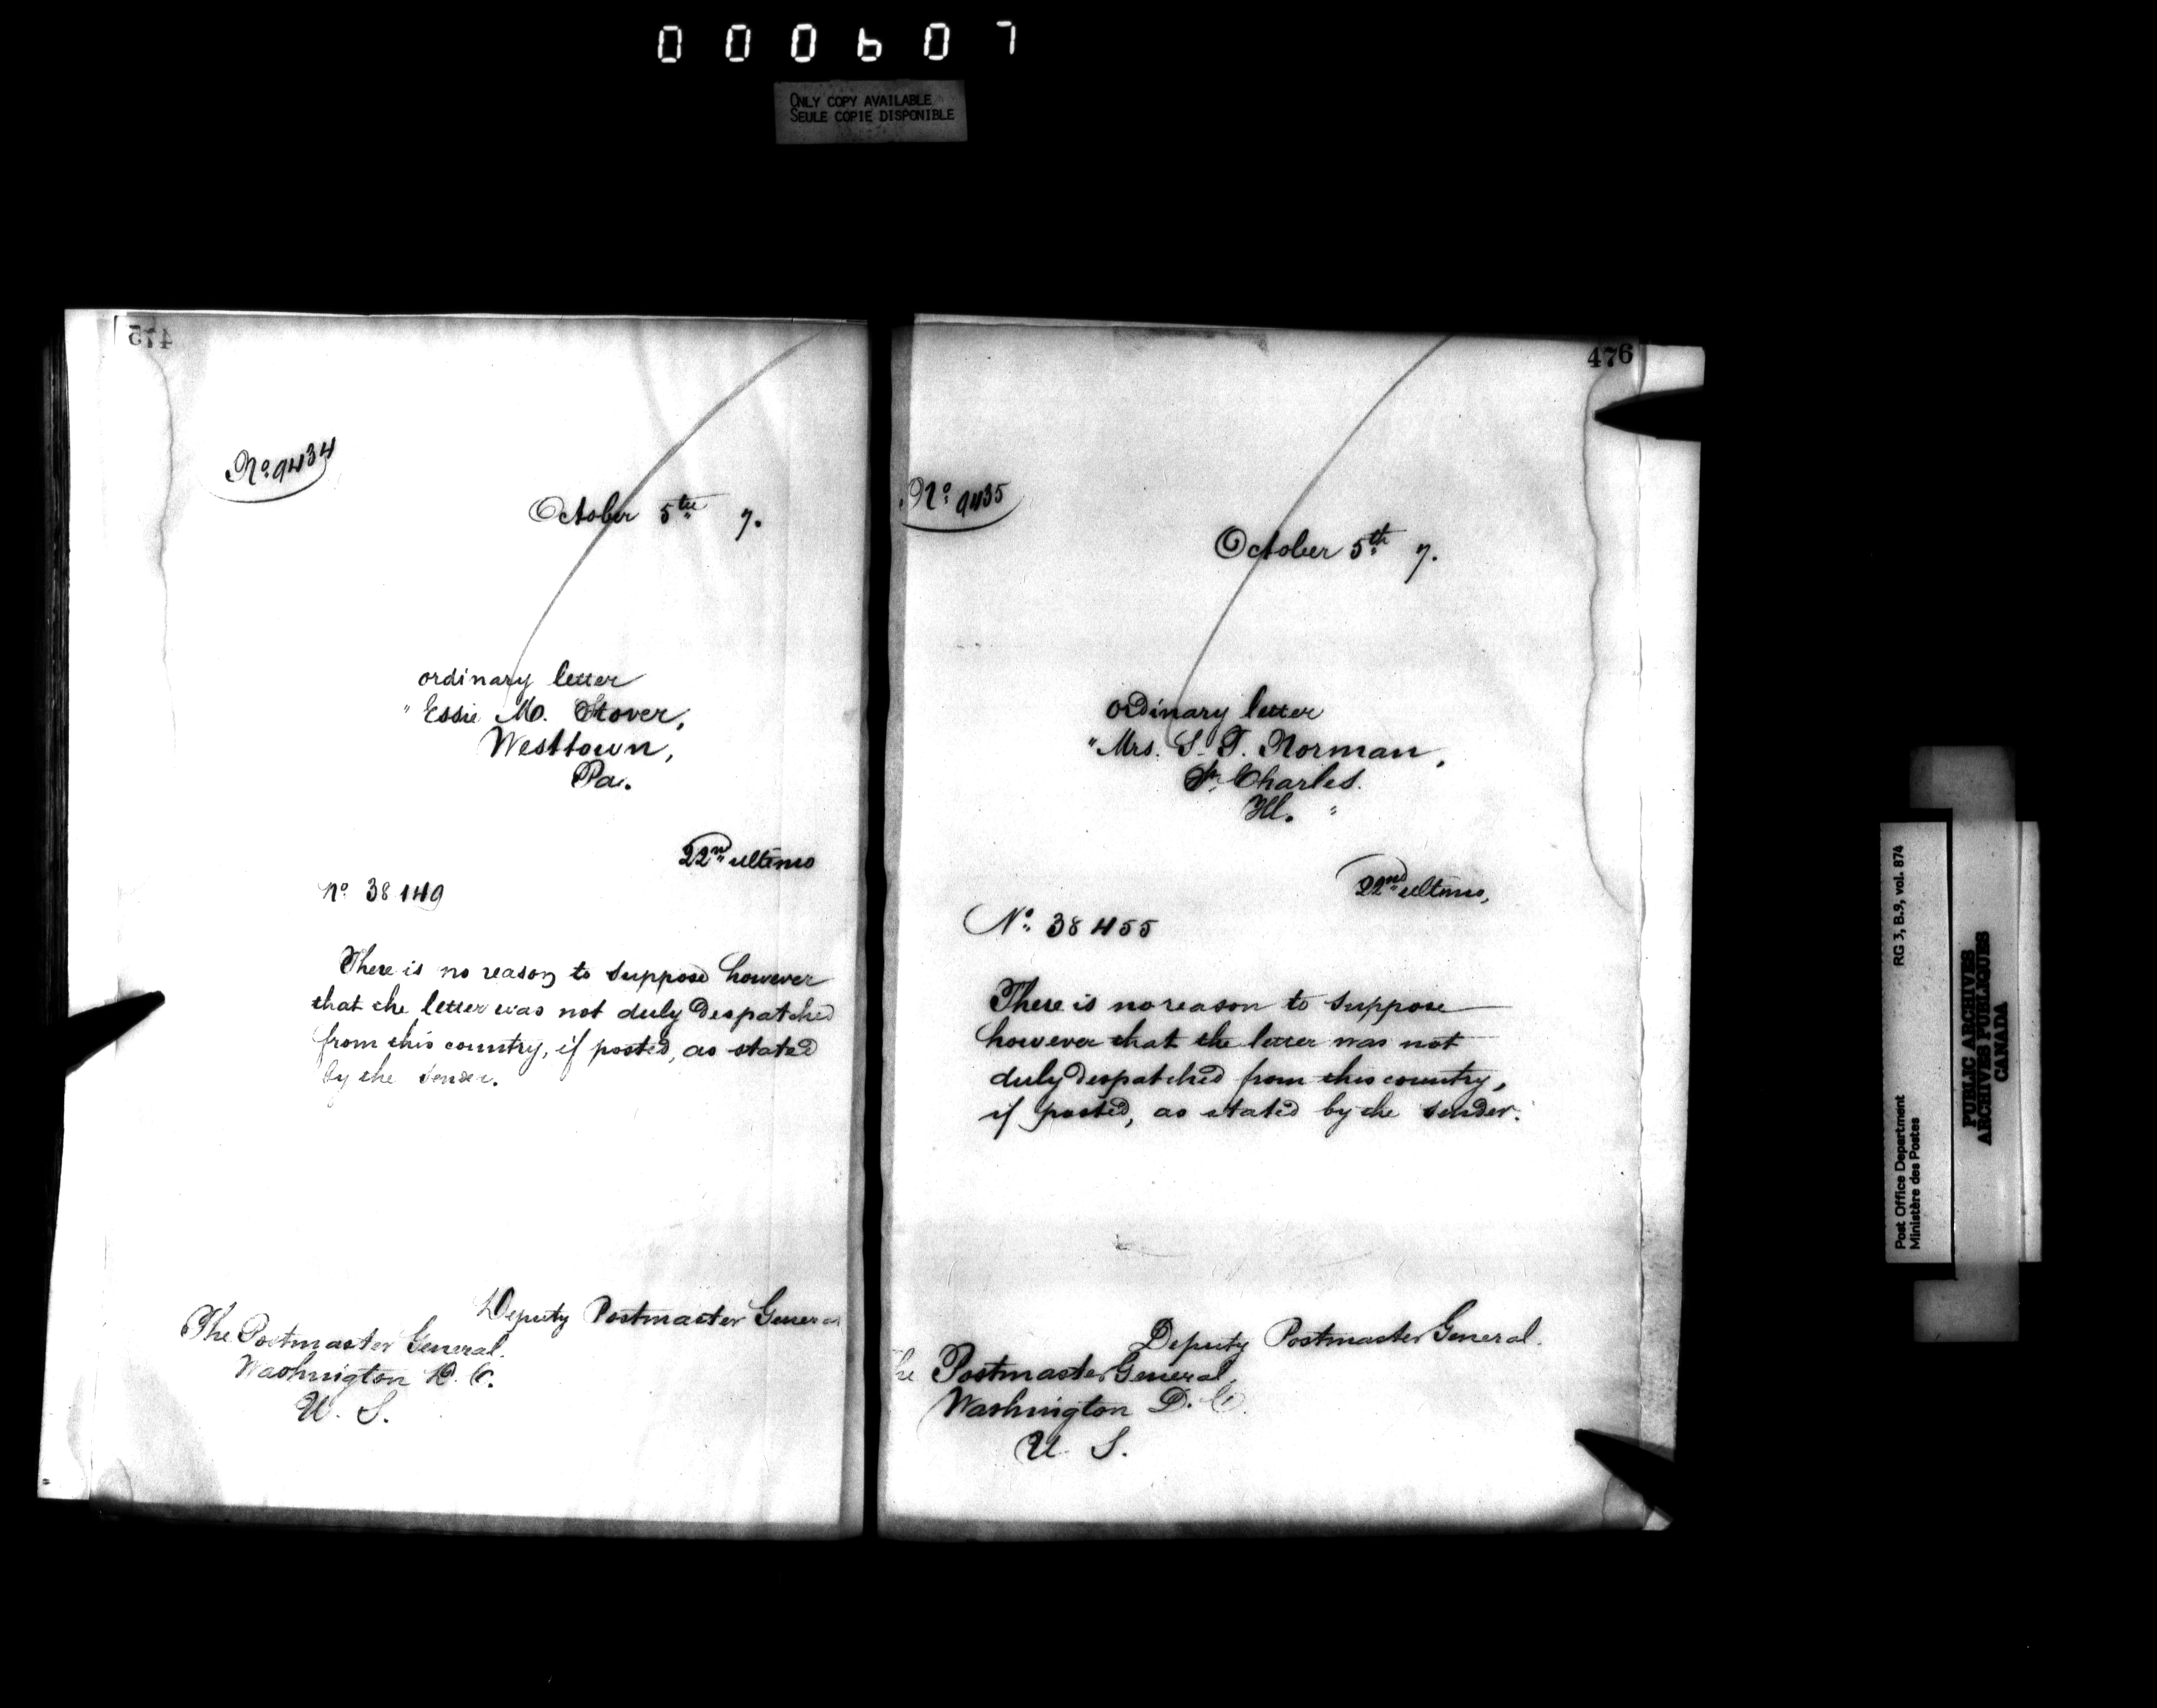 000607
ONLY COPY AVAILABLE
SEULE COPIE DISPONIBLE
475
No. 9434
October 5th 7.
ordinary letter
" Essie M. Stover,
Westtown,
Pa.
22nd ultimo
No. 38149
There is no reason to suppose however
that the letter was not duly despatched
from this country, if posted, as stated
by the sender.
Deputy Postmaster General
The Postmaster General.
Washington D. C.
U. S.
476
No. 9435
October 5th 7.
ordinary letter
"Mrs. S. T. Norman,
St. Charles.
Ill. "
22nd ultimo,
No. 38455
There is no reason to suppose
however that the letter was not
duly despatched from this country,
if posted, as stated by the sender.
Deputy Postmaster General.
he Postmaster General,
Washington D. C.
U. S.
Post Office Department
Ministère des Postes
RG 3, B.9, vol. 874
PUBLIC ARCHIVES
ARCHIVES PUBLIQUES
CANADA